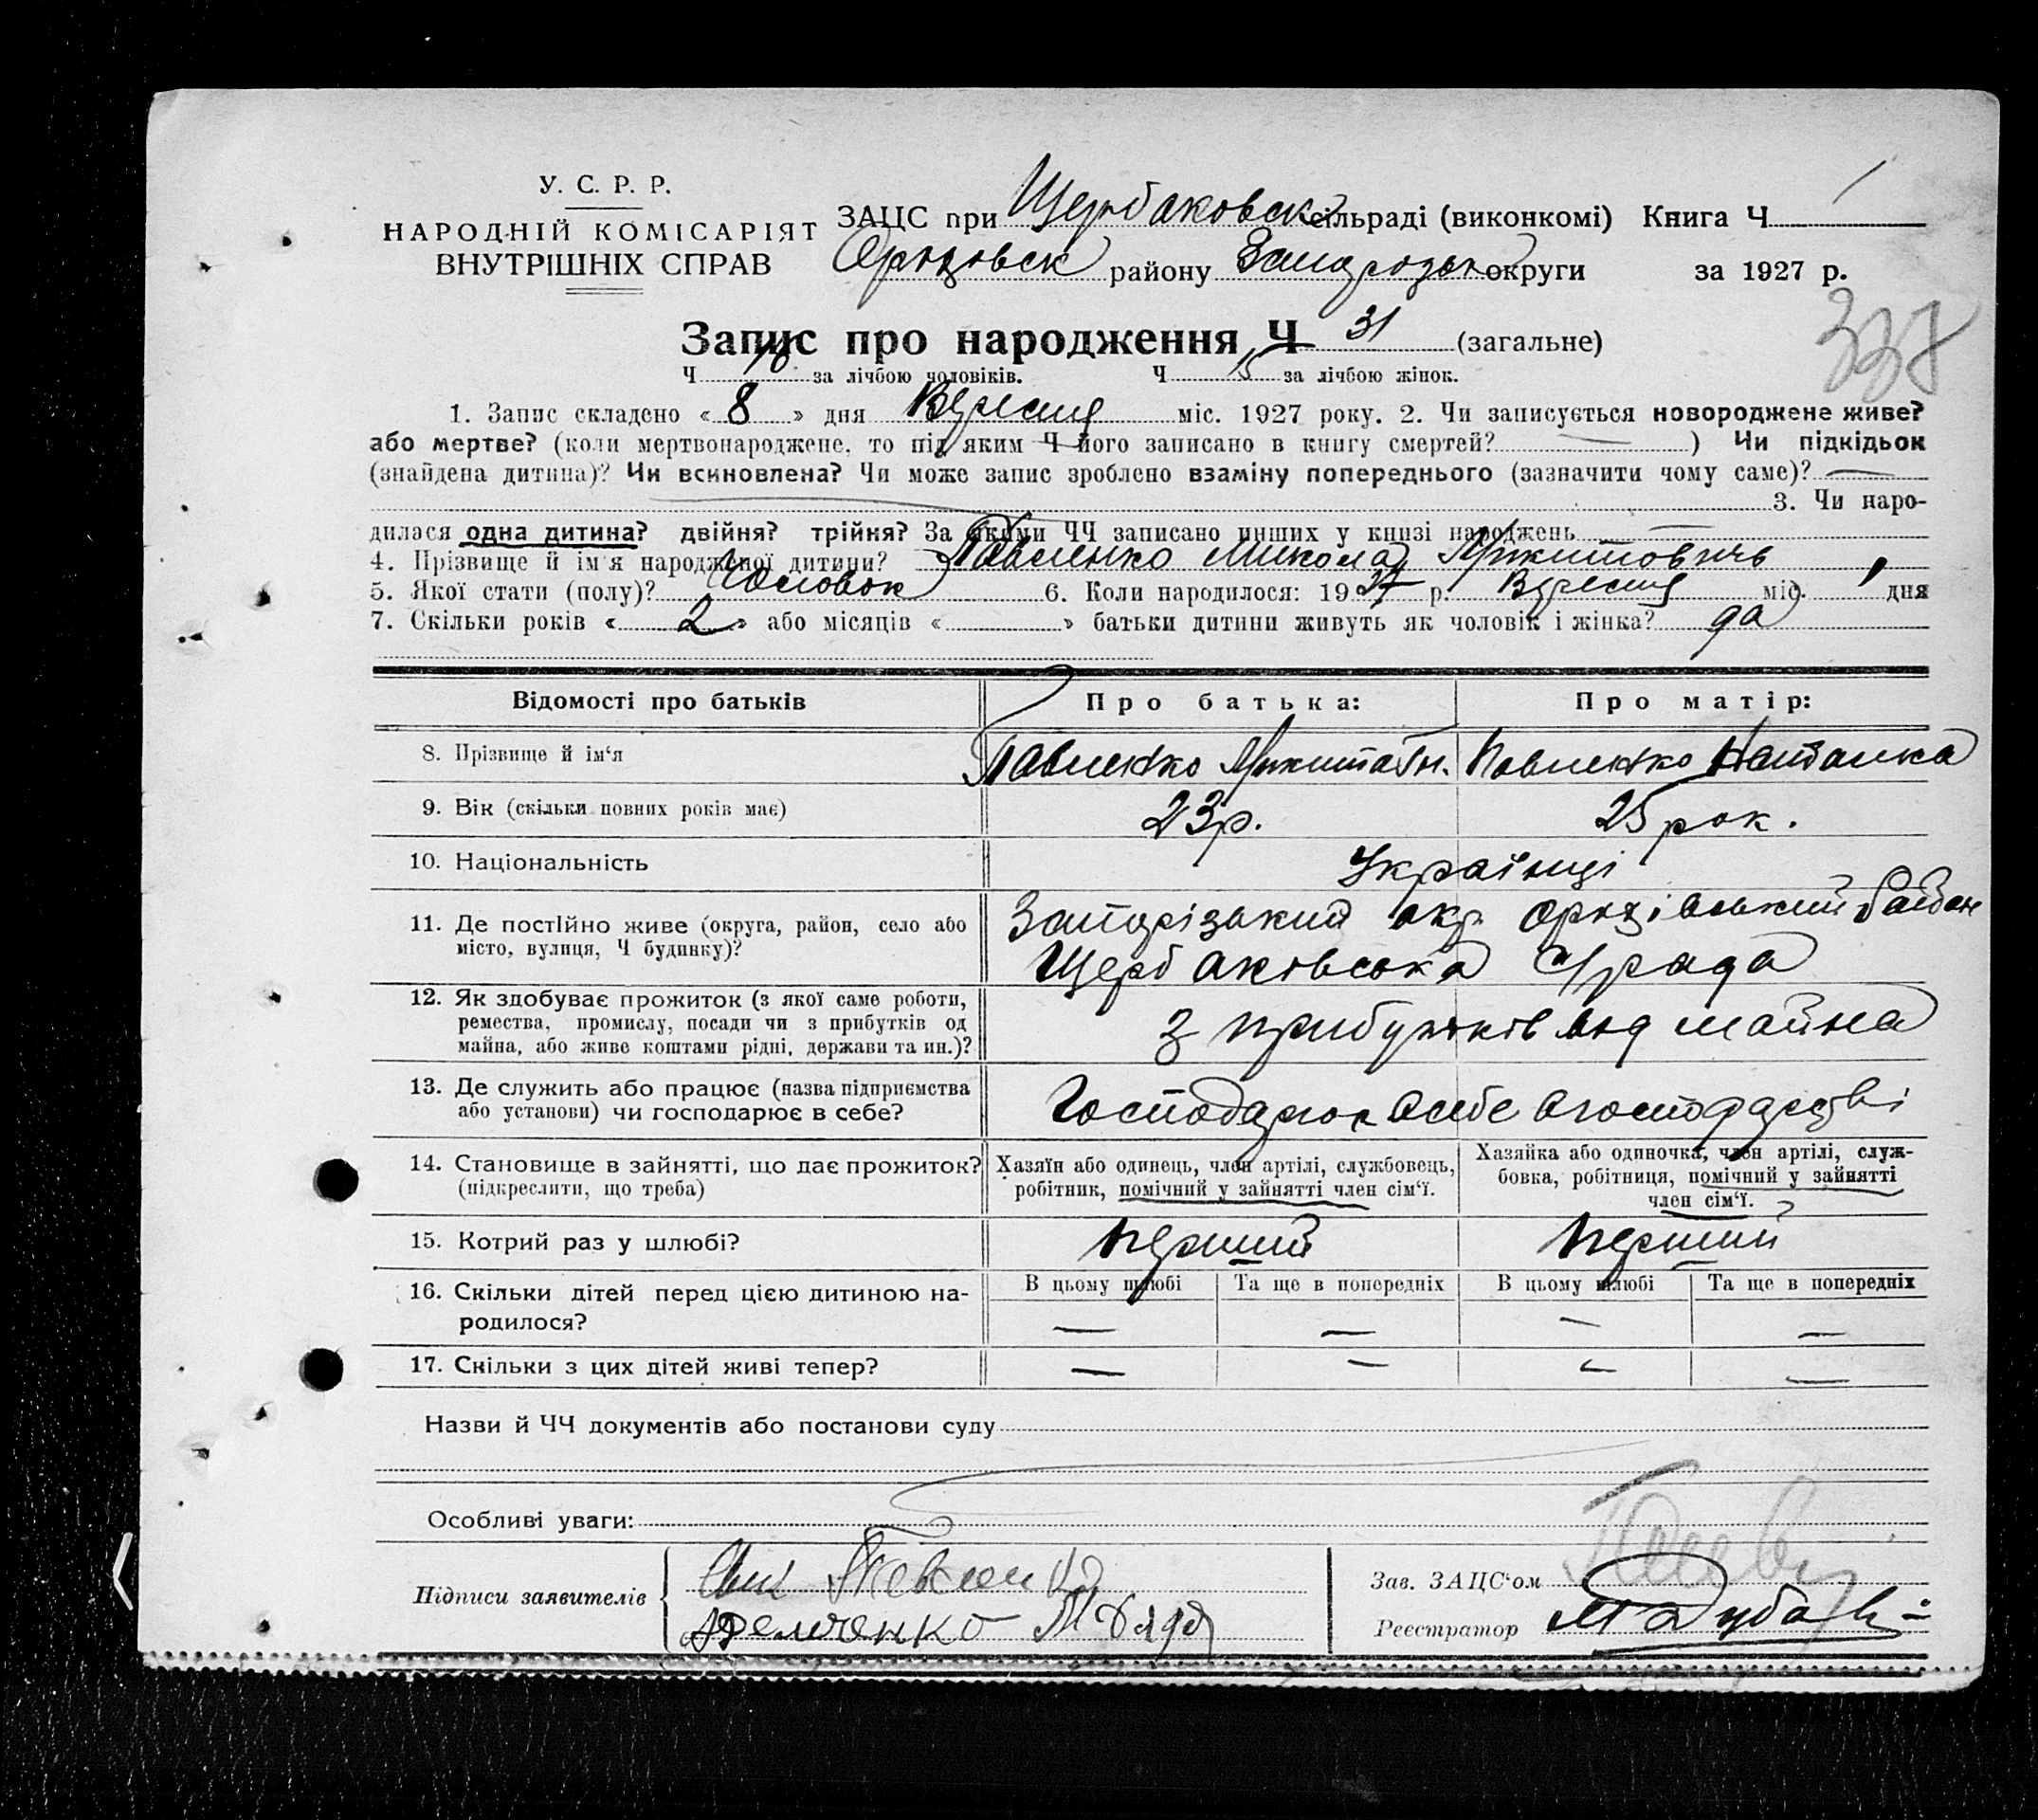 У. С. Р. Р.
НАРОДНІЙ КОМІСАРІЯТ
ВНУТРІШНІХ СПРАВ
ЗАЦС при Щербаковск сільраді (виконкомі) Книга Ч 1
Оріховск району Запорозьк округи за 1927 р.
337
Запис про народження Ч 31 (загальне)
Ч 16 за лічбою чоловіків. Ч 15 за лічбою жінок.
1. Запис складено « 8 » дня Вересня міс. 1927 року. 2. Чи записується новороджене живе?
або мертве? (коли мертвонароджене, то під яким Ч його записано в книгу смертей? — ) Чи підкідьок
(знайдена дитина)? Чи всиновлена? Чи може запис зроблено взаміну попереднього (зазначити чому саме)? —
3. Чи наро-
дилася одна дитина? двійня? трійня? За якими ЧЧ записано инших у книзі народжень —
4. Прізвище й ім'я народженої дитини? Павленко Микола Микитовичь
5. Якої стати (полу)? Чоловок 6. Коли народилося: 1927 р. Вересня міс. 1 дня
7. Скільки років « 2 » або місяців « » батьки дитини живуть як чоловік і жінка? да
Відомості про батьків Про батька: Про матір:
8. Прізвище й ім'я Павленко Микита Ів. Павленко Наталка
9. Вік (скільки повних років має) 23 р. 25 рок.
10. Національність Українці
11. Де постійно живе (округа, район, село або
місто, вулиця, Ч будинку)?
Запорізький окр. Оріхівський район
Щербаковська С/рада
12. Як здобуває прожиток (з якої саме роботи,
ремества, промислу, посади чи з прибутків од
майна, або живе коштами рідні, держави та ин.)?
з прибутків від майна
13. Де служить або працює (назва підприємства
або установи) чи господарює в себе?
Господарює в себе в господарстві
14. Становище в зайнятті, що дає прожиток?
(підкреслити, що треба)
Хазяїн або одинець, член артілі, службовець,
робітник, помічний у зайнятті член сім'ї.
Хазяйка або одиночка, член артілі, служ-
бовка, робітниця, помічний у зайнятті
член сім'ї.
15. Котрий раз у шлюбі? перший перший
16. Скільки дітей перед цією дитиною на-
родилося?
В цьому шлюбі Та ще в попередніх В цьому шлюбі Та ще в попередніх
— — — —
17. Скільки з цих дітей живі тепер? — — — —
Назви й ЧЧ документів або постанови суду
Особливі уваги:
Підписи заявителів
Павленко
Демченко
Зав. ЗАЦС'ом
Реєстратор